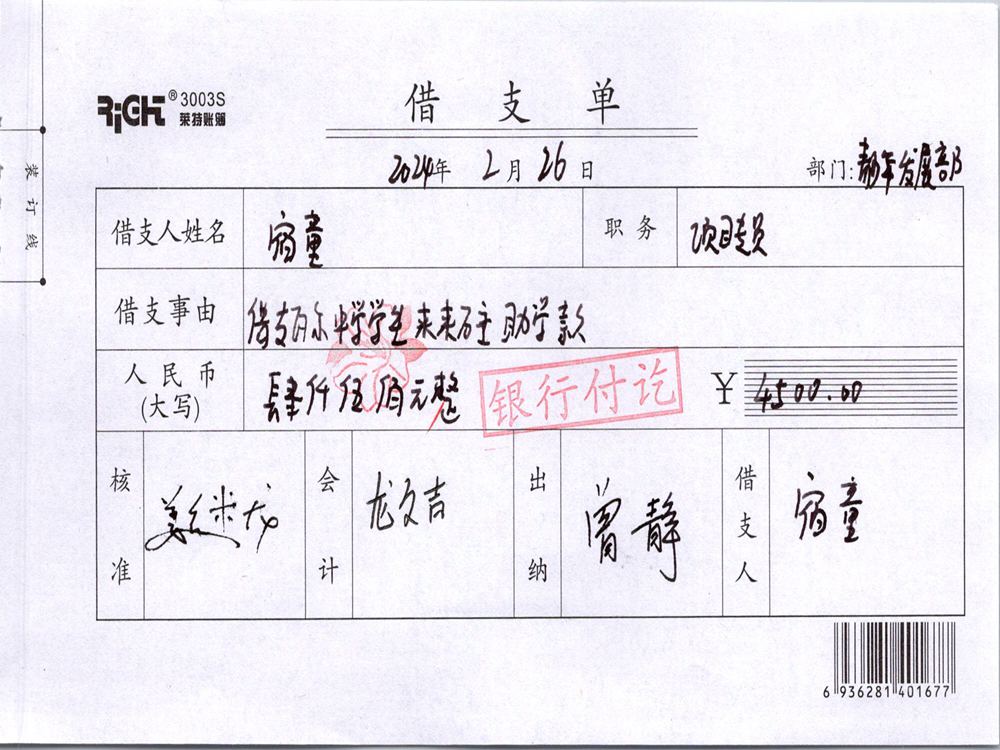 RiGHT® 3003S
莱特账簿
借支单
2024年 2月 26日
部门:青年发展部
装订线
借支人姓名 宿童 职务 项目专员
借支事由 借支百尔中学学生未来百生助学款
人民币(大写) 肆仟伍佰元整 ¥ 4500.00
银行付讫
核准 会计 龙文吉 出纳 曾静 借支人 宿童
6 936281 401677